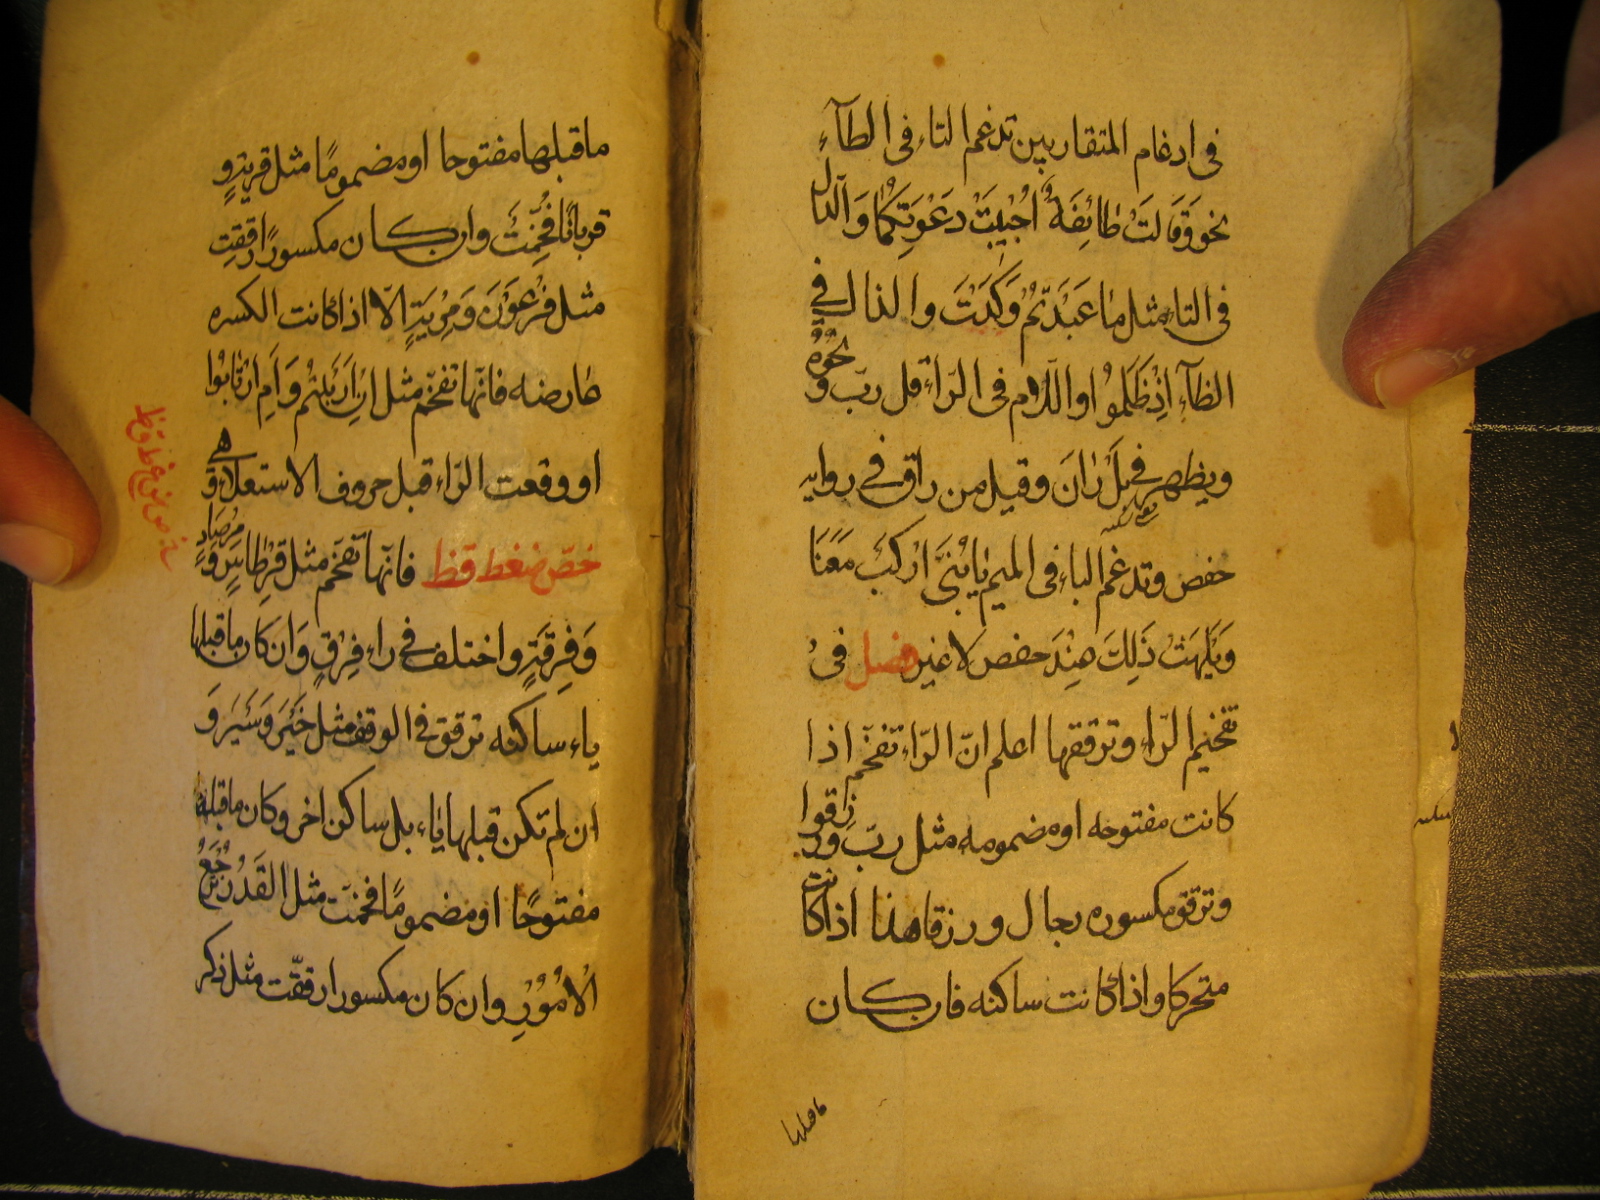 فى ادغام المتقاربين تدغم التاء فى الطآء
نحو وَقَالَتْ طَائِفَةٌ اُجْيِبَتْ دَعْوَتَكُمَا وَالدال
فى التاء مثل مَا عَبَدْتُمْ وَكَدْتَ والذال فى
الظآء اِذْ ظَلَمُوا واللّام فى الرّاء قل ربّ ونحوه
ويظهر فى بَلْ رَانَ وقيل من راق فى روايه
حفص وتدغم الباء فى الميم يَا بُنَىَّ ارْكَبْ مَعَنَا
وَيَلْهَثْ ذَلِكَ عِنْدَ حفص لا غير فصل فى
تفخيم الرّاء وترقيقها اعلم انّ الرّاء تفخّم اذا
كانت مفتوحه او مضمومه مثل ربّ ورزقوا
وترقق مكسوره رجال ورزقا هذا اذا كانت
متحركا واذا كانت ساكنه فان كان
ما قبلها
ما قبلها مفتوحا او مضمومًا مثل قريةٍ و
قربانًا فُخِّمَتْ وان كان مكسورًا رققت
مثل فِرْعَوْنَ وَمِرْيَةٍ الّا اذا كانت الكسره
عارضه فانّها تفخّم مثل اِنِ ارْتَبْتُمْ وَاَمِ ارْتَابُوا
او وقعت الرّاء قبل حروف الاستعلاء وهى
خصّ ضغط قظ فانّها تفخّم مثل قِرْطَاسٍ وَمِرْصَادٍ
وَفِرْقَةٍ واختلف فى راء فِرْقٍ وَان كان ما قبلها
ياء ساكنه ترقق فى الوقف مثل خَيْرَ وَسَيْرَ وَ
ان لم تكن قبلها ياء بل ساكن اخر وكان ما قبله
مفتوحًا او مضمومًا فخمّت مثل القَدْر تُرْجَعُ
الْاُمُوْرُ وان كان مكسورا رققّت مثل ذكر